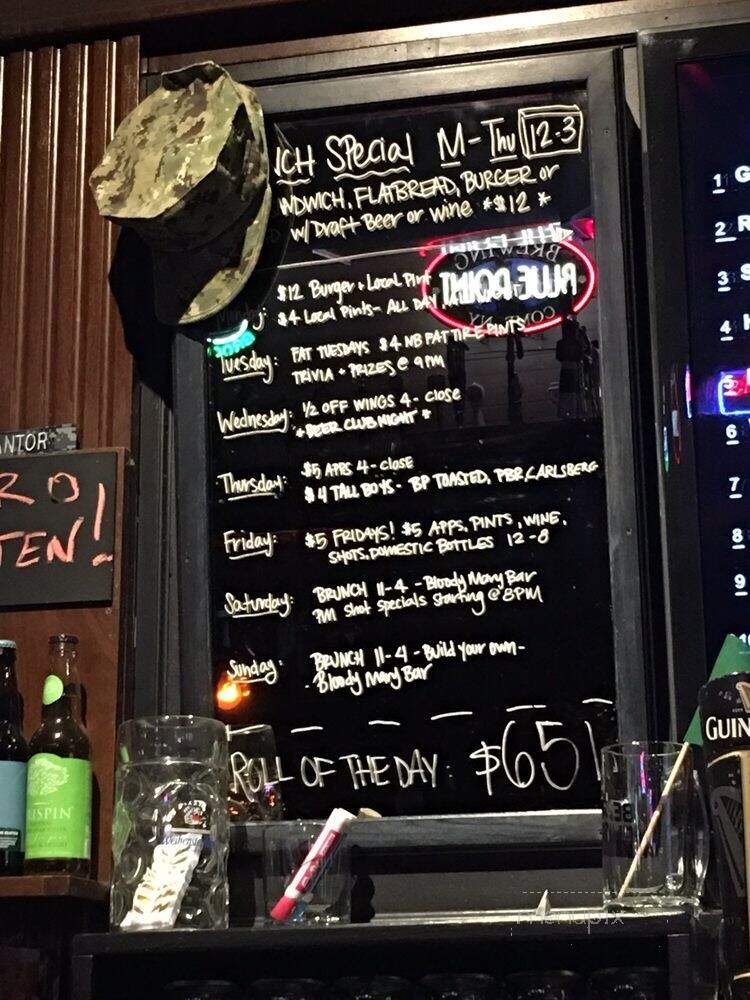 NCH Special M-Thu 12-3
NDWICH, FLATBREAD, BURGER or
w/Draft Beer or wine *$12*
$12 Burger + Local Pint
$4 Local Pints - ALL DAY
BREWING
BLUE POINT
Tuesday: FAT TUESDAYS $4 NB FAT TIRE PINTS
TRIVIA + PRIZES @ 9PM
Wednesday: 1/2 OFF WINGS 4-close
* BEER CLUB NIGHT *
Thursday: $5 APPS 4-close
$4 TALL BOYS - BP TOASTED, PBR, CARLSBERG
Friday: $5 FRIDAYS! $5 APPS, PINTS, WINE,
SHOTS, DOMESTIC BOTTLES 12-8
Saturday: BRUNCH 11-4 - Bloody Mary Bar
PM Shot Specials Starting @ 8PM
Sunday: BRUNCH 11-4 - Build your own -
- Bloody Mary Bar
ROLL OF THE DAY: $651
NTOR
RO
TEN!
1 G
2 R
3 S
4
5
6
7
8
9
USPIN
GUIN